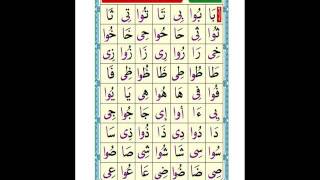 بَا بُوا بِى تَا تُوا تِى ثَا
ثُوا ثِى حَا حُوا حِى خَا خُوا
خِى رَا رُوا رِى زَا زُوا زِى
طَا طُوا طِى ظَا ظُوا ظِى فَا
فُوا فِى هَا هُوا هِى يَا يُوا
يِى ءَا أُوا إِى جَا جُوا جِى
دَا دُوا دِى ذَا ذُوا ذِى سَا
سُوا سِى شَا شُوا شِى صَا صُوا
صِى ضَا ضُوا ضِى عَا عُوا عِى